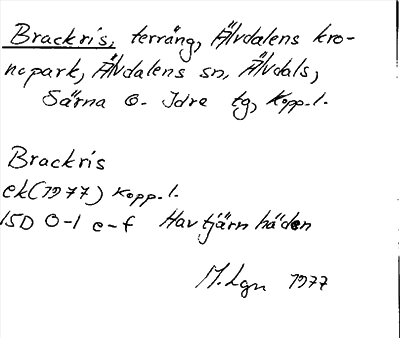 Brackris, terräng, Älvdalens kro-
nopark, Älvdalens sn, Älvdals,
Särna o. Idre tg, Kopp. l.
Brackris
ek (1977) Kopp. l.
15D 0-1 e-f Havtjärnhåden
M. Lgn 1977